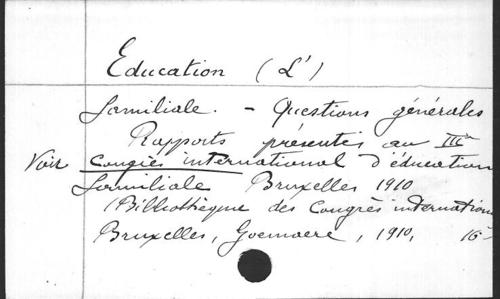 Education (L')
familiale. - Questions générales
Rapports présentés au IIIe
Voir Congrès international d'éducation
familiale Bruxelles 1910
(Bibliothèque des Congrès internation
Bruxelles, Goemaere, 1910, 16-